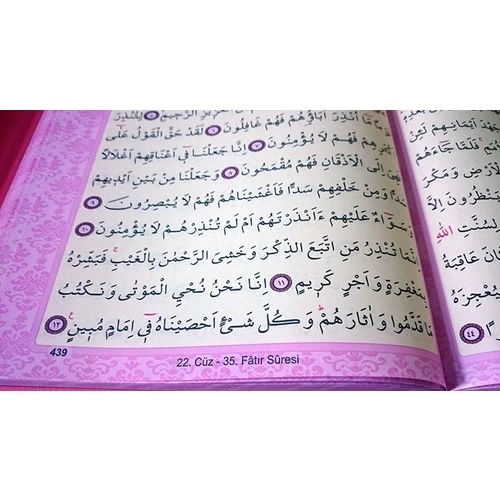 الرَّحِيمِ ﴿٥﴾ لِتُنْذِرَ
مَٓا اُنْذِرَ اٰبَٓاؤُهُمْ فَهُمْ غَافِلُونَ ﴿٦﴾ لَقَدْ حَقَّ الْقَوْلُ عَلٰٓى
فَهُمْ لَا يُؤْمِنُونَ ﴿٧﴾ اِنَّا جَعَلْنَا فٖٓي اَعْنَاقِهِمْ اَغْلَالًا
اِلَى الْاَذْقَانِ فَهُمْ مُقْمَحُونَ ﴿٨﴾ وَجَعَلْنَا مِنْ بَيْنِ اَيْدٖيهِمْ
سَدًّا وَمِنْ خَلْفِهِمْ سَدًّا فَاَغْشَيْنَاهُمْ فَهُمْ لَا يُبْصِرُونَ ﴿٩﴾
وَسَوَٓاءٌ عَلَيْهِمْ ءَاَنْذَرْتَهُمْ اَمْ لَمْ تُنْذِرْهُمْ لَا يُؤْمِنُونَ ﴿١٠﴾
اِنَّمَا تُنْذِرُ مَنِ اتَّبَعَ الذِّكْرَ وَخَشِيَ الرَّحْمٰنَ بِالْغَيْبِۚ فَبَشِّرْهُ
بِمَغْفِرَةٍ وَاَجْرٍ كَرٖيمٍ ﴿١١﴾ اِنَّا نَحْنُ نُحْيِ الْمَوْتٰى وَنَكْتُبُ
مَا قَدَّمُوا وَاٰثَارَهُمْۜ وَكُلَّ شَيْءٍ اَحْصَيْنَاهُ فٖٓي اِمَامٍ مُبٖينٍ۟ ﴿١٢﴾
439
22. Cüz - 35. Fâtır Sûresi
اَيْمَانِهِمْ لَئِنْ
فَلَمَّا جَٓاءَهُمْ
وَمَكْرَ
يَنْظُرُونَ اِلَّا
لِسُنَّتِ اللّٰهِ
كَانَ عَاقِبَةُ
لِيُعْجِزَهُ
﴿٤٤﴾